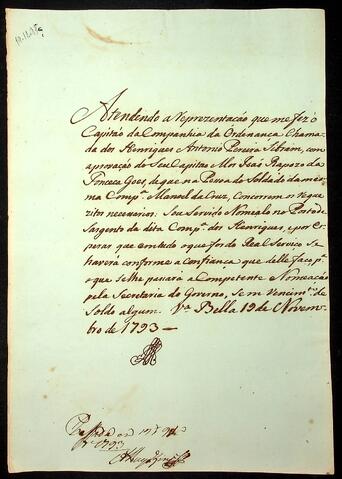 Atendendo a reprezentação que me fez o
Capitão da Companhia da Ordenança Chama-
da dos Henriques Antonio Pereira, com
aprovação do Seu Capitão Mor José Rapozo da
Fonceca Goes, de que na Pessoa do Soldado da mes-
ma Comp.ª Manoel da Cruz, concorrem os requi-
zitos necesarios. Sou Servido Nomealo no Posto de
Sargento da dita Comp.ª dos Henriques, e por es-
perar que em tudo o que for do Real Serviço se
haverá conforme a confiança que delle faço p.ª
o que se lhe pasará a Competente Nomeação
pela Secretaria do Governo, sem Vencim.to de
Soldo algum. V.ª Bella 19 de Novem-
bro de 1793